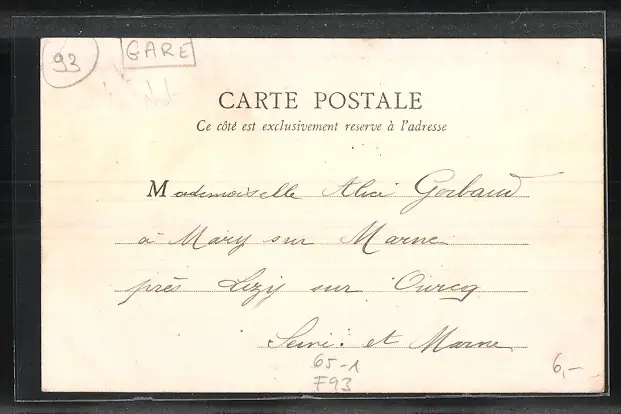 93 GARE
CARTE POSTALE
Ce côté est exclusivement reserve à l'adresse
Mademoiselle Alice Gorbaud
à Mary sur Marne
près Lizy sur Ourcq
Seine et Marne
65-1
F93
6,-